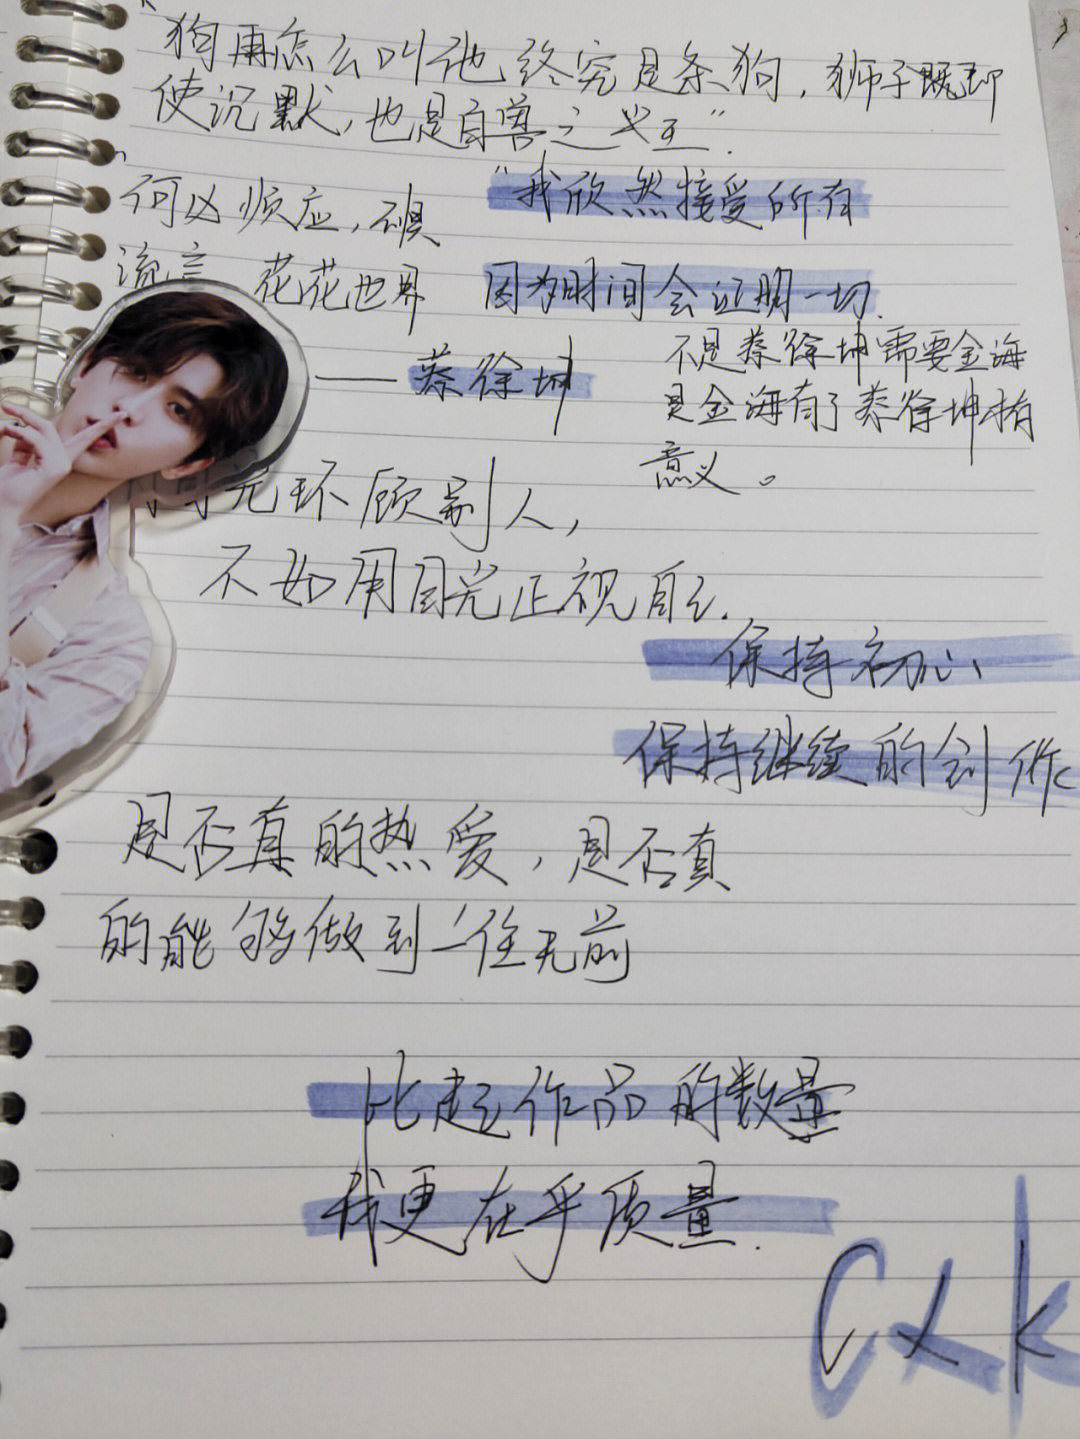 "狗再怎么叫他终究是条狗，狮子既即
使沉默，也是百兽之王".
"何必顺应，不惧
流言 花花世界
"我欣然接受所有
因为时间会证明一切.
——蔡徐坤
不是蔡徐坤需要金海
是金海有了蔡徐坤才有
意义。
光环顾别人，
不如用目光正视自己.
保持初心
保持继续的创作
是否真的热爱，是否真
的能够做到一往无前
比起作品的数量
我更在乎质量.
cxk